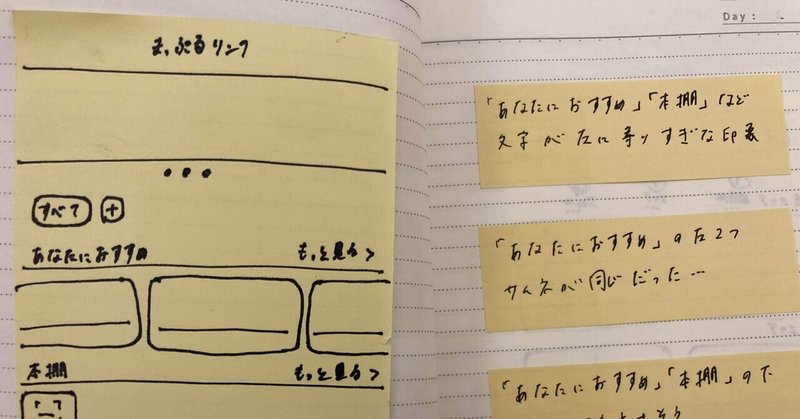 もっぷるリンク
すべて +
あなたにおすすめ もっと見る >
本棚 もっと見る >
Day :
「あなたにおすすめ」「本棚」など
文字が左に寄りすぎな印象
「あなたにおすすめ」の左2つ
サムネが同じだった…
「あなたにおすすめ」「本棚」の下